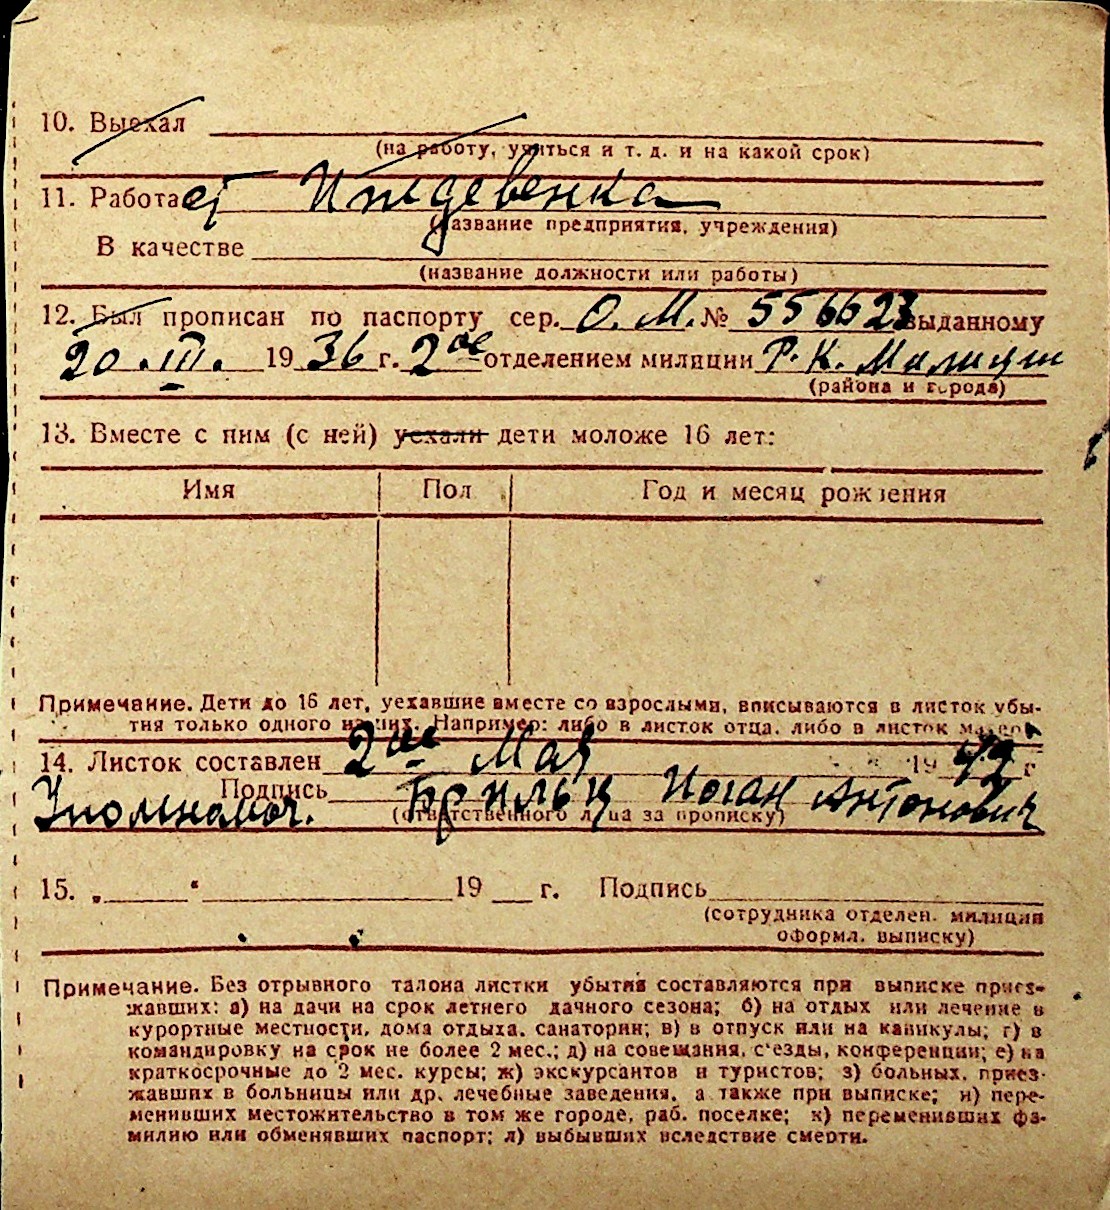 10. Выехал
(на работу, учиться и т. д. и на какой срок)
11. Работает Иждевенка
(название предприятия, учреждения)
В качестве
(название должности или работы)
12. Был прописан по паспорту сер. О. М. № 556623 выданному
20. III. 1936 г. 2ое отделением милиции Р. К. Милиции
(района и города)
13. Вместе с ним (с ней) уехали дети моложе 16 лет:
Имя Пол Год и месяц рождения
Примечание. Дети до 16 лет, уехавшие вместе со взрослыми, вписываются в листок убы-
тия только одного из них. Например: либо в листок отца, либо в листок матери
14. Листок составлен 2ое Мая 1942 г
Подпись Брильц Иоган Антонович
(ответственного лица за прописку)
15. „ “ 19 г. Подпись
(сотрудника отделен. милиции
оформл. выписку)
Примечание. Без отрывного талона листки убытия составляются при выписке приез-
жавших: а) на дачи на срок летнего дачного сезона; б) на отдых или лечение в
курортные местности, дома отдыха, санатории; в) в отпуск или на каникулы; г) в
командировку на срок не более 2 мес.; д) на совещания, с'езды, конференции; е) на
краткосрочные до 2 мес. курсы; ж) экскурсантов и туристов; з) больных, приез-
жавших в больницы или др. лечебные заведения, а также при выписке; и) пере-
менивших местожительство в том же городе, раб. поселке; к) переменивших фа-
милию или обменявших паспорт; л) выбывших вследствие смерти.